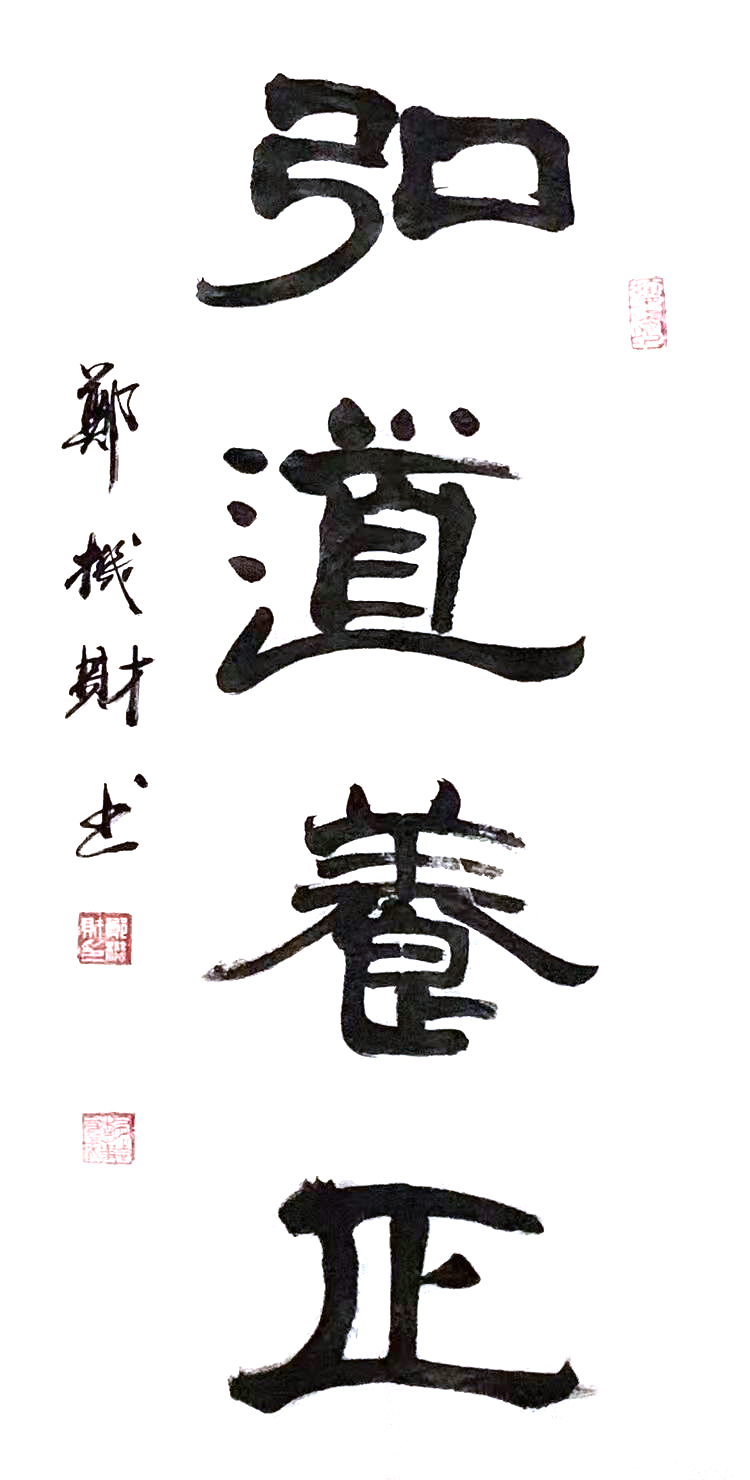 弘道養正
鄭機財书
鄭機財印